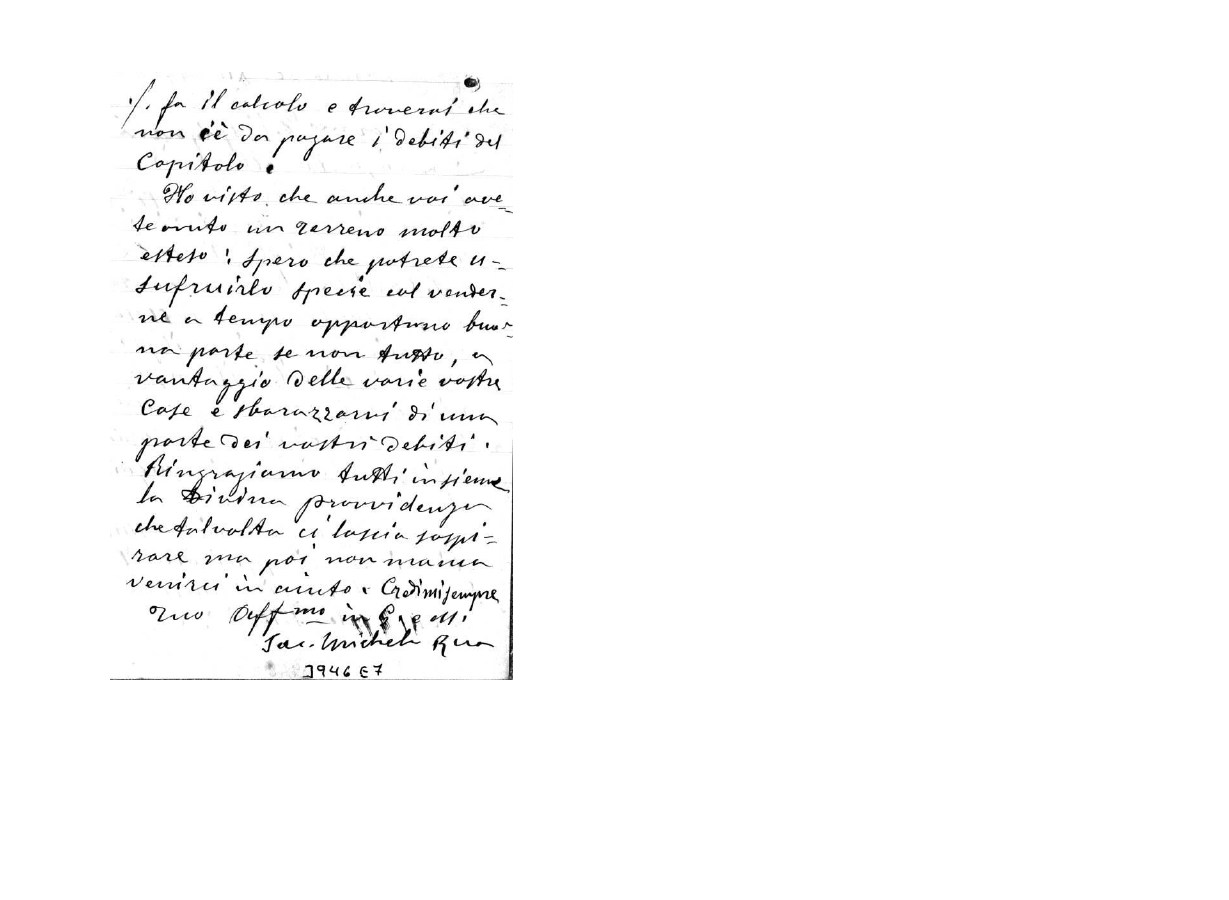 ./. fa il calcolo e troverai che
non c'è da pagare i debiti del
Capitolo.
Ho visto che anche voi ave-
te avuto un terreno molto
esteso: spero che potrete u-
sufruirlo specie col vender-
ne a tempo opportuno buo-
na parte se non tutto, a
vantaggio delle varie vostre
Case e sbarazzarvi di una
parte dei vostri debiti.
Ringraziamo tutti insieme
la Divina provvidenza
che talvolta ci lascia sospi-
rare ma poi non manca
venirci in aiuto. Credimi sempre
Tuo Aff mo in G. e M.
Sac. Michele Rua
3946 E7